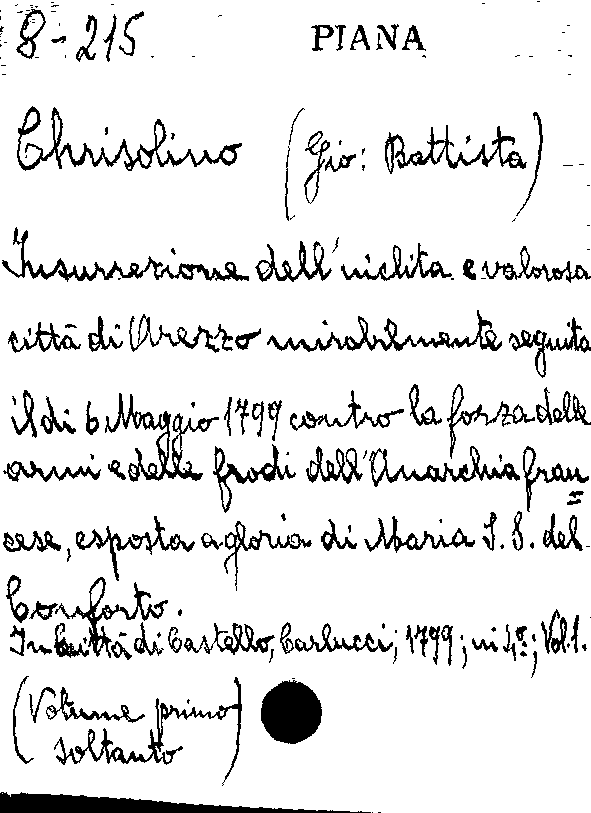 8-215 PIANA
Chrisolino (Gio: Battista)
Insurrezione dell'inclita e valorosa
città di Arezzo mirabilmente seguita
il di 6 Maggio 1799 contro la forza delle
armi e delle frodi dell'Anarchia fran=
cese, esposta a gloria di Maria S. S. del
Conforto.
In Città di Castello, Carlucci, 1799; in 4º; Vol. 1.
(Volume primo
soltanto)